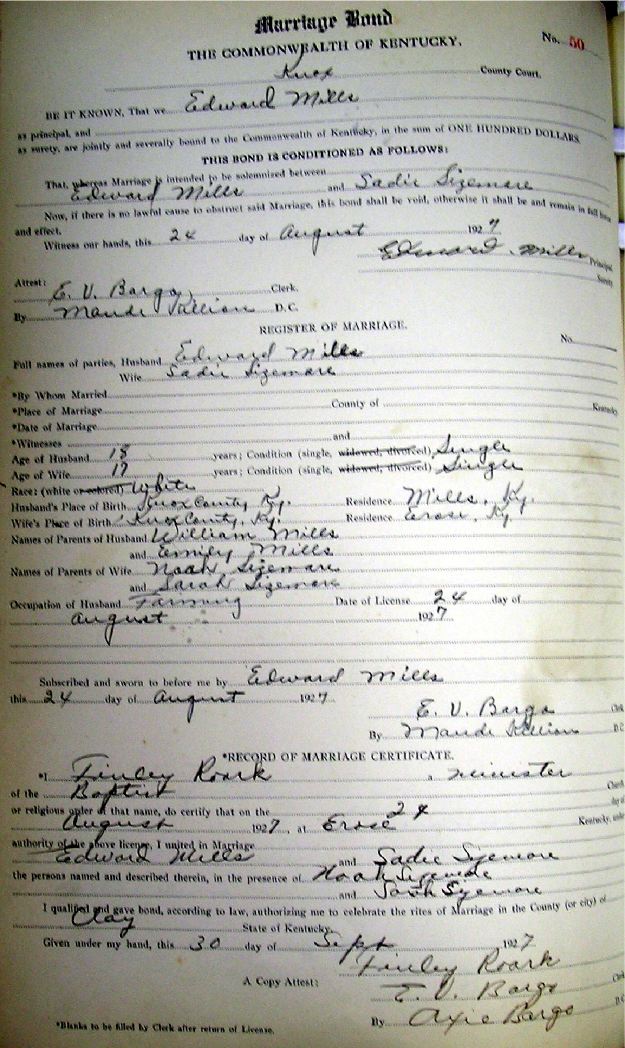 Marriage Bond
THE COMMONWEALTH OF KENTUCKY,
No. 50
Knox County Court.
BE IT KNOWN, That we Edward Mills
as principal, and
as surety, are jointly and severally bound to the Commonwealth of Kentucky, in the sum of ONE HUNDRED DOLLARS
THIS BOND IS CONDITIONED AS FOLLOWS:
That, whereas Marriage is intended to be solemnized between
Edward Mills and Sadie Sizemore
Now, if there is no lawful cause to obstruct said Marriage, this bond shall be void, otherwise it shall be and remain in full force
and effect.
Witness our hands, this 24 day of August 1927
Edward Mills Principal
Surety
Attest:
E. V. Bargo, Clerk.
By Maude Killion D. C.
REGISTER OF MARRIAGE.
No.
Full names of parties, Husband Edward Mills
Wife Sadie Sizemore
*By Whom Married
*Place of Marriage County of Kentucky
*Date of Marriage
*Witnesses and
Age of Husband 18 years; Condition (single, widowed, divorced) Single
Age of Wife 17 years; Condition (single, widowed, divorced) Single
Race: (white or colored) White
Husband's Place of Birth Knox County Ky. Residence Mills, Ky.
Wife's Place of Birth Knox County, Ky. Residence Erose, Ky
Names of Parents of Husband William Mills
and Emily Mills
Names of Parents of Wife Noah Sizemore
and Sarah Sizemore
Occupation of Husband Farming Date of License 24 day of
August 1927
Subscribed and sworn to before me by Edward Mills
this 24 day of August 1927
E. V. Bargo Clk
By Maude Killion D C
*RECORD OF MARRIAGE CERTIFICATE.
*I Finley Roark, a minister
of the Baptist Church
or religious order of that name, do certify that on the 24 day of
August 1927, at Erose Kentucky, under
authority of the above license, I united in Marriage
Edward Mills and Sadie Syemore
the persons named and described therein, in the presence of Noah
and Syemore
I qualified and gave bond, according to law, authorizing me to celebrate the rites of Marriage in the County (or city) of
Clay State of Kentucky.
Given under my hand, this 30 day of Sept 1927
Finley Roark
A Copy Attest: E. V. Bargo Clk
By Axie Bargo D C
*Blanks to be filled by Clerk after return of License.